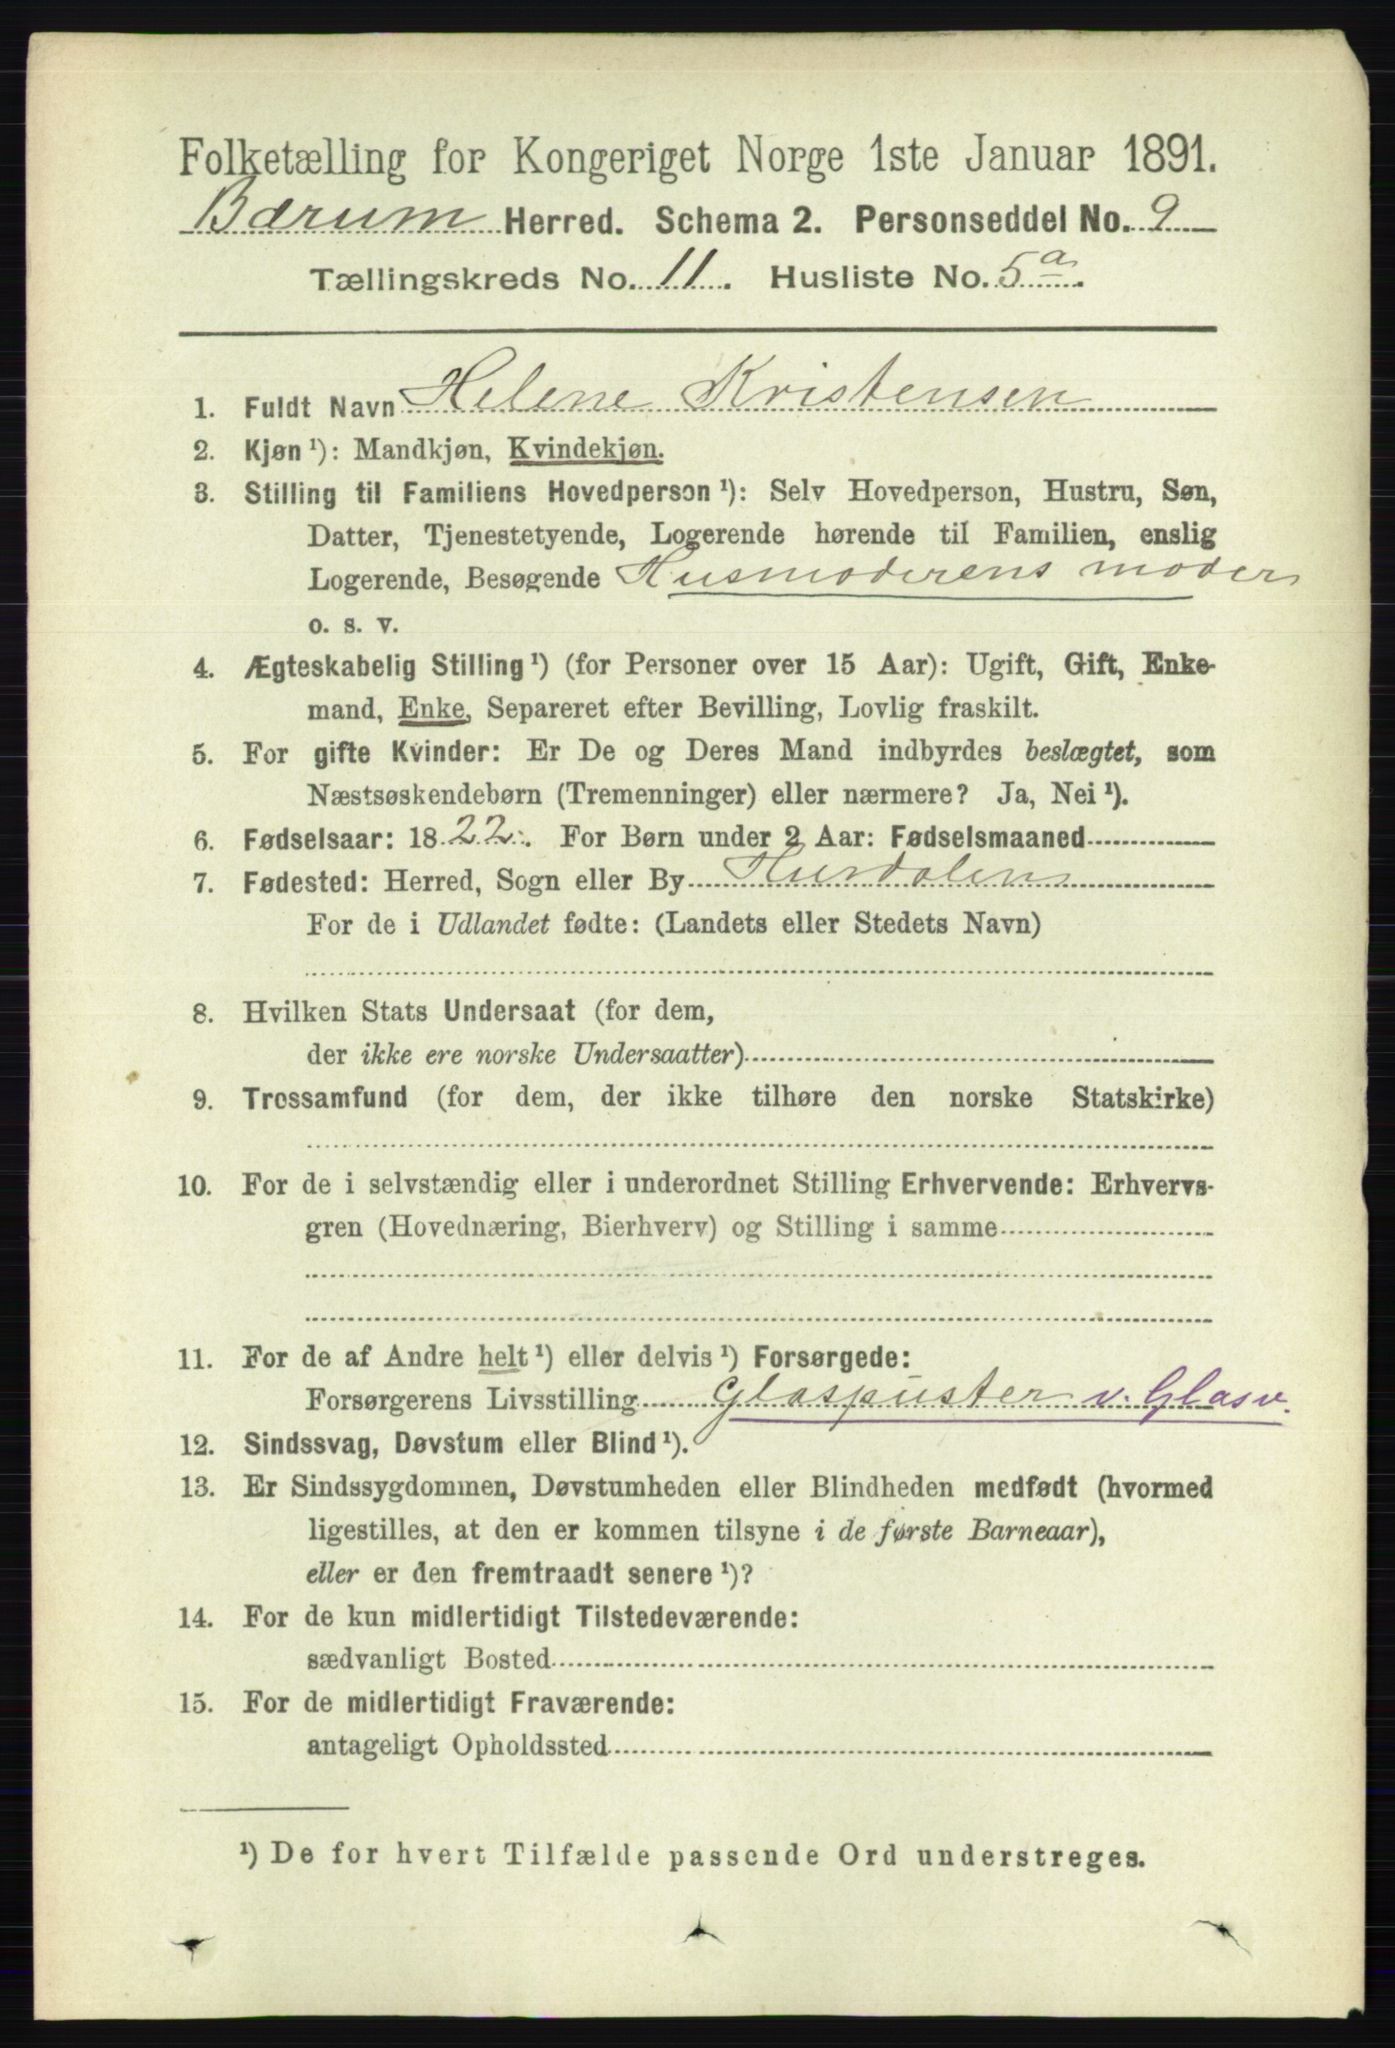 Folketælling for Kongeriget Norge 1ste Januar 1891.
Bærum Herred. Schema 2. Personseddel No. 9
Tællingskreds No. 11. Husliste No. 5a.
1. Fuldt Navn Helene Kristensen
2. Kjøn ¹): Mandkjøn, Kvindekjøn.
3. Stilling til Familiens Hovedperson ¹): Selv Hovedperson, Hustru, Søn,
Datter, Tjenestetyende, Logerende hørende til Familien, enslig
Logerende, Besøgende Husmoderens moder
o. s. v.
4. Ægteskabelig Stilling ¹) (for Personer over 15 Aar): Ugift, Gift, Enke-
mand, Enke, Separeret efter Bevilling, Lovlig fraskilt.
5. For gifte Kvinder: Er De og Deres Mand indbyrdes beslægtet, som
Næstsøskendebørn (Tremenninger) eller nærmere? Ja, Nei ¹).
6. Fødselsaar: 1822. For Børn under 2 Aar: Fødselsmaaned
7. Fødested: Herred, Sogn eller By Hurdalen
For de i Udlandet fødte: (Landets eller Stedets Navn)
8. Hvilken Stats Undersaat (for dem,
der ikke ere norske Undersaatter)
9. Trossamfund (for dem, der ikke tilhøre den norske Statskirke)
10. For de i selvstændig eller i underordnet Stilling Erhvervende: Erhvervs-
gren (Hovednæring, Bierhverv) og Stilling i samme
11. For de af Andre helt ¹) eller delvis ¹) Forsørgede:
Forsørgerens Livsstilling Glaspuster v. Glasv.
12. Sindssvag, Døvstum eller Blind ¹).
13. Er Sindssygdommen, Døvstumheden eller Blindheden medfødt (hvormed
ligestilles, at den er kommen tilsyne i de første Barneaar),
eller er den fremtraadt senere ¹)?
14. For de kun midlertidigt Tilstedeværende:
sædvanligt Bosted
15. For de midlertidigt Fraværende:
antageligt Opholdssted
¹) De for hvert Tilfælde passende Ord understreges.